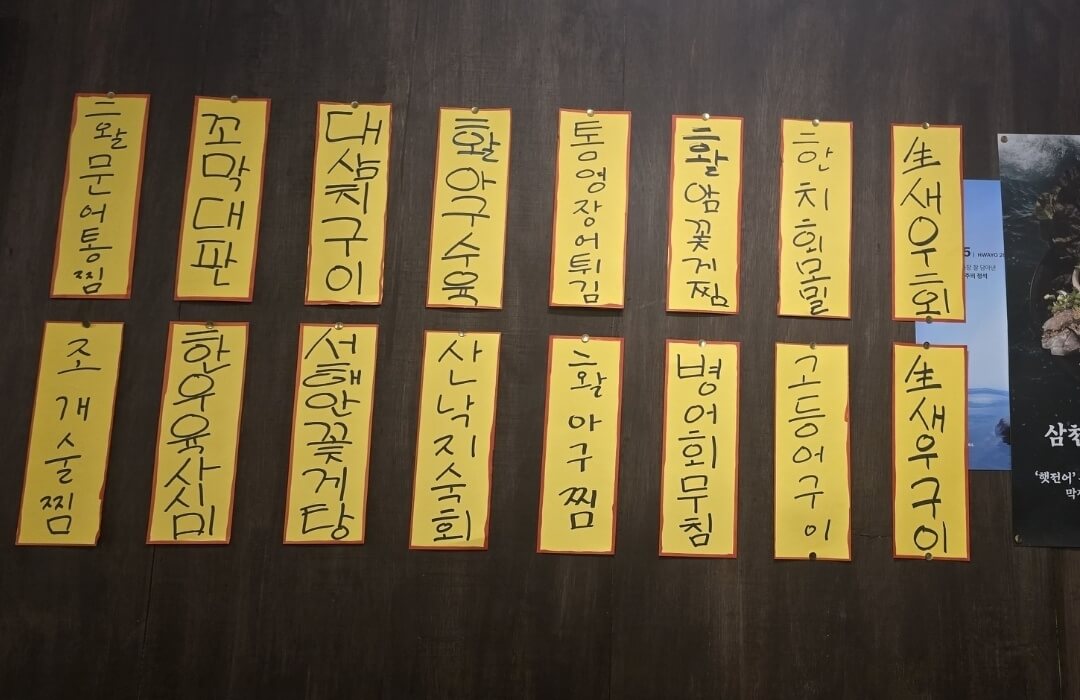 활문어통찜
꼬막대판
대삼치구이
활아구수육
통영장어튀김
활암꽃게찜
한치회모밀
生새우회
조개술찜
한우육사시미
서해안꽃게탕
산낙지숙회
활아구찜
병어회무침
고등어구이
生새우구이
5 | HWAYO
잘 담아낸
주의 정석
삼천
'햇전어'